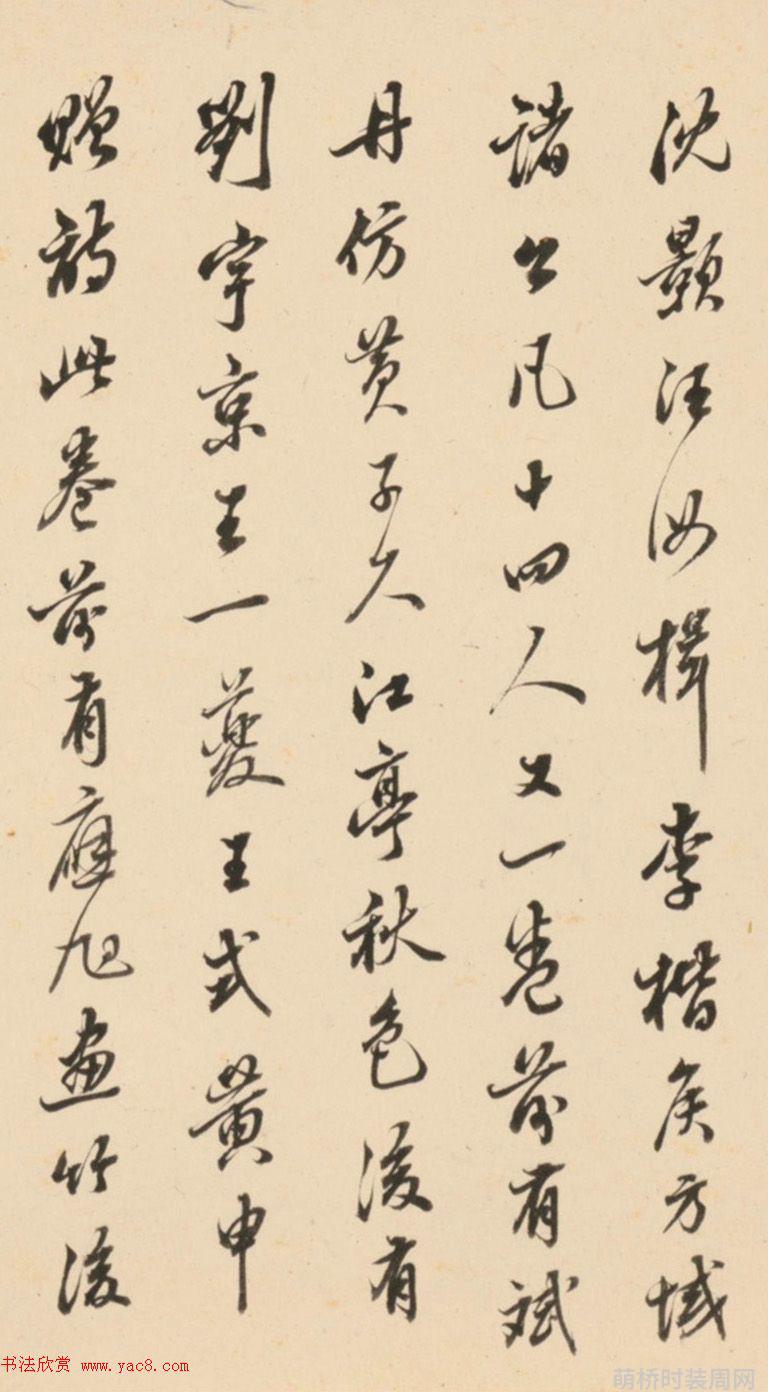 沈顥汪汝楫李楷侯方域
諸公凡十四人又一卷前有斌
丹仿黄子久江亭秋色後有
劉宇京王一夔王式黄申
贈詩此卷前有應旭畫竹後
书法欣赏 www.yac8.com
萌桥时装周网